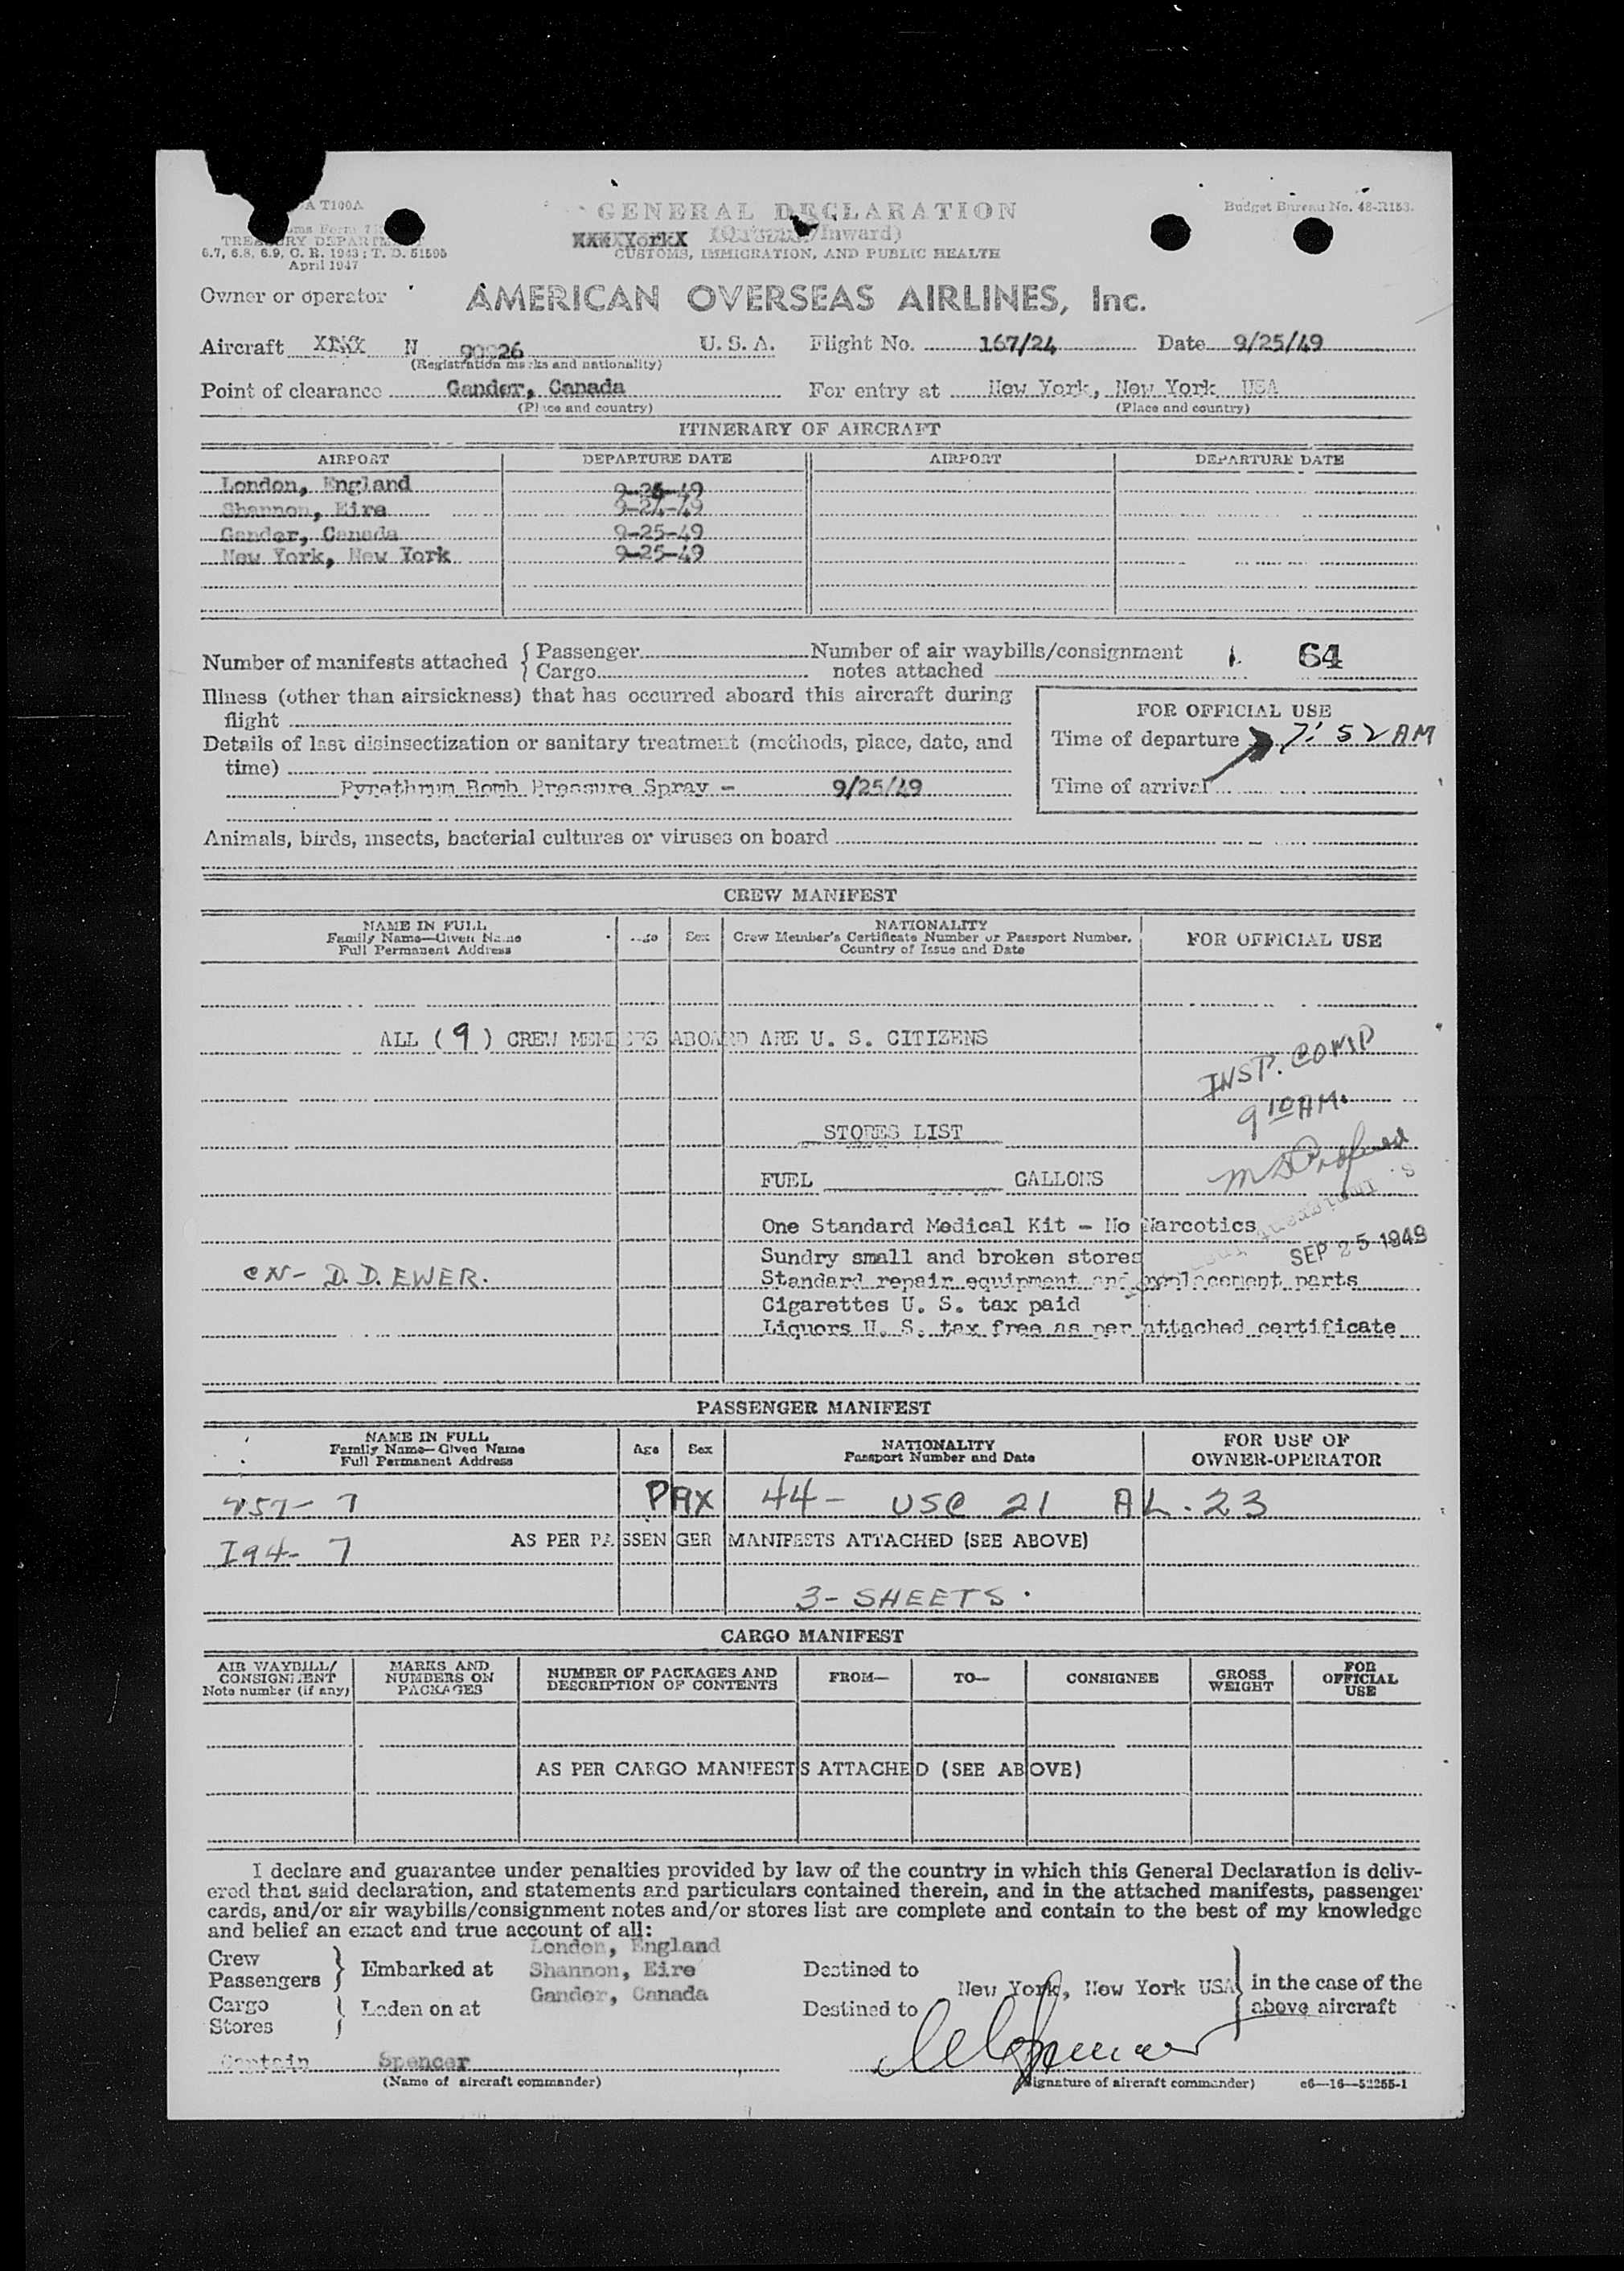 A T100A
GENERAL DECLARATION
Budget Bureau No. 48-R153.
TREASURY DEPARTMENT
(Outward/Inward)
6.7, 6.8, 6.9, C. R. 1943; T. D. 51595
CUSTOMS, IMMIGRATION, AND PUBLIC HEALTH
April 1947
Owner or operator AMERICAN OVERSEAS AIRLINES, Inc.
Aircraft N U. S. A. Flight No. 167/24 Date 9/25/49
(Registration marks and nationality)
Point of clearance Gander, Canada For entry at New York, New York USA
(Place and country) (Place and country)
ITINERARY OF AIRCRAFT
AIRPORT DEPARTURE DATE AIRPORT DEPARTURE DATE
London, England 9-24-49
Shannon, Eire 9-24-49
Gander, Canada 9-25-49
New York, New York 9-25-49
Number of manifests attached { Passenger Number of air waybills/consignment 64
{ Cargo notes attached
Illness (other than airsickness) that has occurred aboard this aircraft during
flight
FOR OFFICIAL USE
Details of last disinsectization or sanitary treatment (methods, place, date, and
time)
Time of departure 7:52 AM
Pyrethrum Bomb Pressure Spray - 9/25/49
Time of arrival
Animals, birds, insects, bacterial cultures or viruses on board
CREW MANIFEST
NAME IN FULL Age Sex NATIONALITY FOR OFFICIAL USE
Family Name—Given Name Crew Member's Certificate Number or Passport Number,
Full Permanent Address Country of Issue and Date
ALL (9) CREW MEMBERS ABOARD ARE U. S. CITIZENS
INSP. COMP
9 10 AM.
STORES LIST
FUEL GALLONS
One Standard Medical Kit - No Narcotics
SEP 25 1949
Sundry small and broken stores
CN- D. D. EWER.
Standard repair equipment and replacement parts
Cigarettes U. S. tax paid
Liquors U. S. tax free as per attached certificate
PASSENGER MANIFEST
NAME IN FULL Age Sex NATIONALITY FOR USE OF
Family Name—Given Name Passport Number and Date OWNER-OPERATOR
Full Permanent Address
257- 7 PAX 44- USC 21 AL. 23
I94- 7 AS PER PASSENGER MANIFESTS ATTACHED (SEE ABOVE)
3- SHEETS.
CARGO MANIFEST
AIR WAYBILL/ MARKS AND NUMBER OF PACKAGES AND FROM— TO— CONSIGNEE GROSS FOR
CONSIGNMENT NUMBERS ON DESCRIPTION OF CONTENTS WEIGHT OFFICIAL
Note number (if any) PACKAGES USE
AS PER CARGO MANIFESTS ATTACHED (SEE ABOVE)
I declare and guarantee under penalties provided by law of the country in which this General Declaration is deliv-
ered that said declaration, and statements and particulars contained therein, and in the attached manifests, passenger
cards, and/or air waybills/consignment notes and/or stores list are complete and contain to the best of my knowledge
and belief an exact and true account of all:
London, England
Crew
Passengers } Embarked at Shannon, Eire Destined to
New York, New York USA } in the case of the
Gander, Canada
Cargo
Stores } Laden on at Destined to above aircraft
Captain Spencer
(Name of aircraft commander) (Signature of aircraft commander) c6—16—52255-1